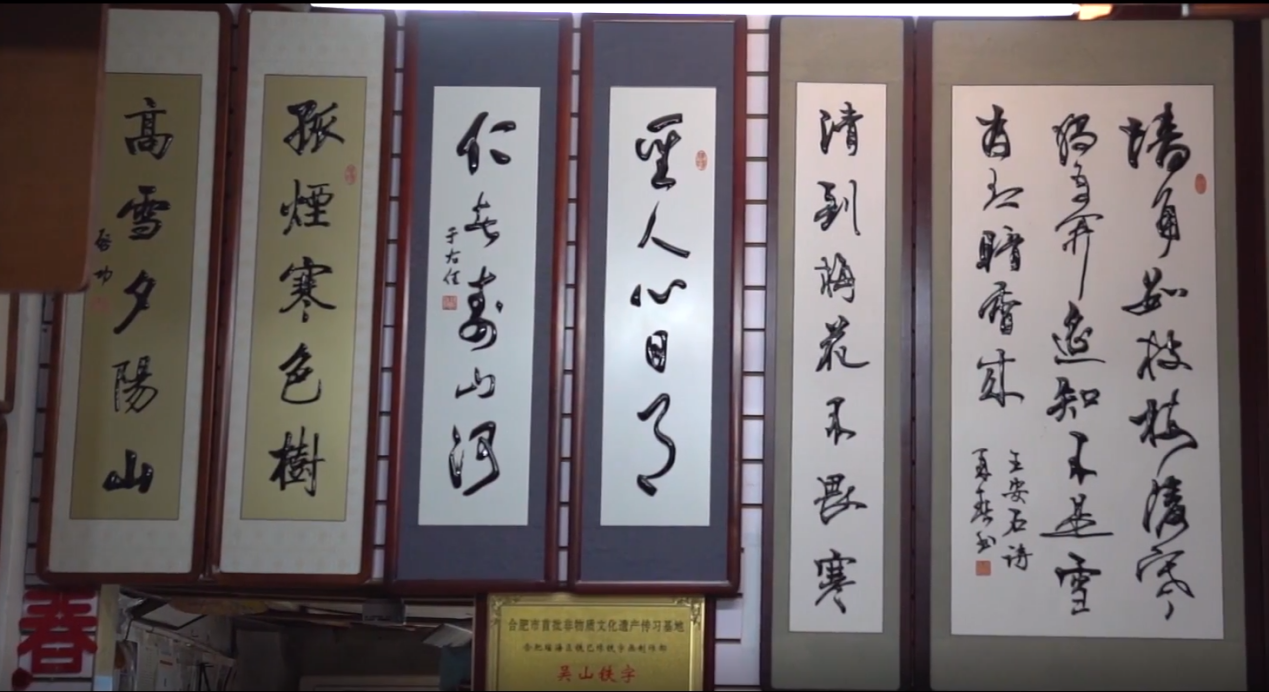 墙角数枝梅凌寒
独自开遥知不是雪
为有暗香来
王安石诗
清到梅花不畏寒
聖人心日月
仁者壽山河
于右任
孤煙寒色樹
高雪夕陽山
啟功
合肥市首批非物质文化遗产传习基地
吴山铁字
春